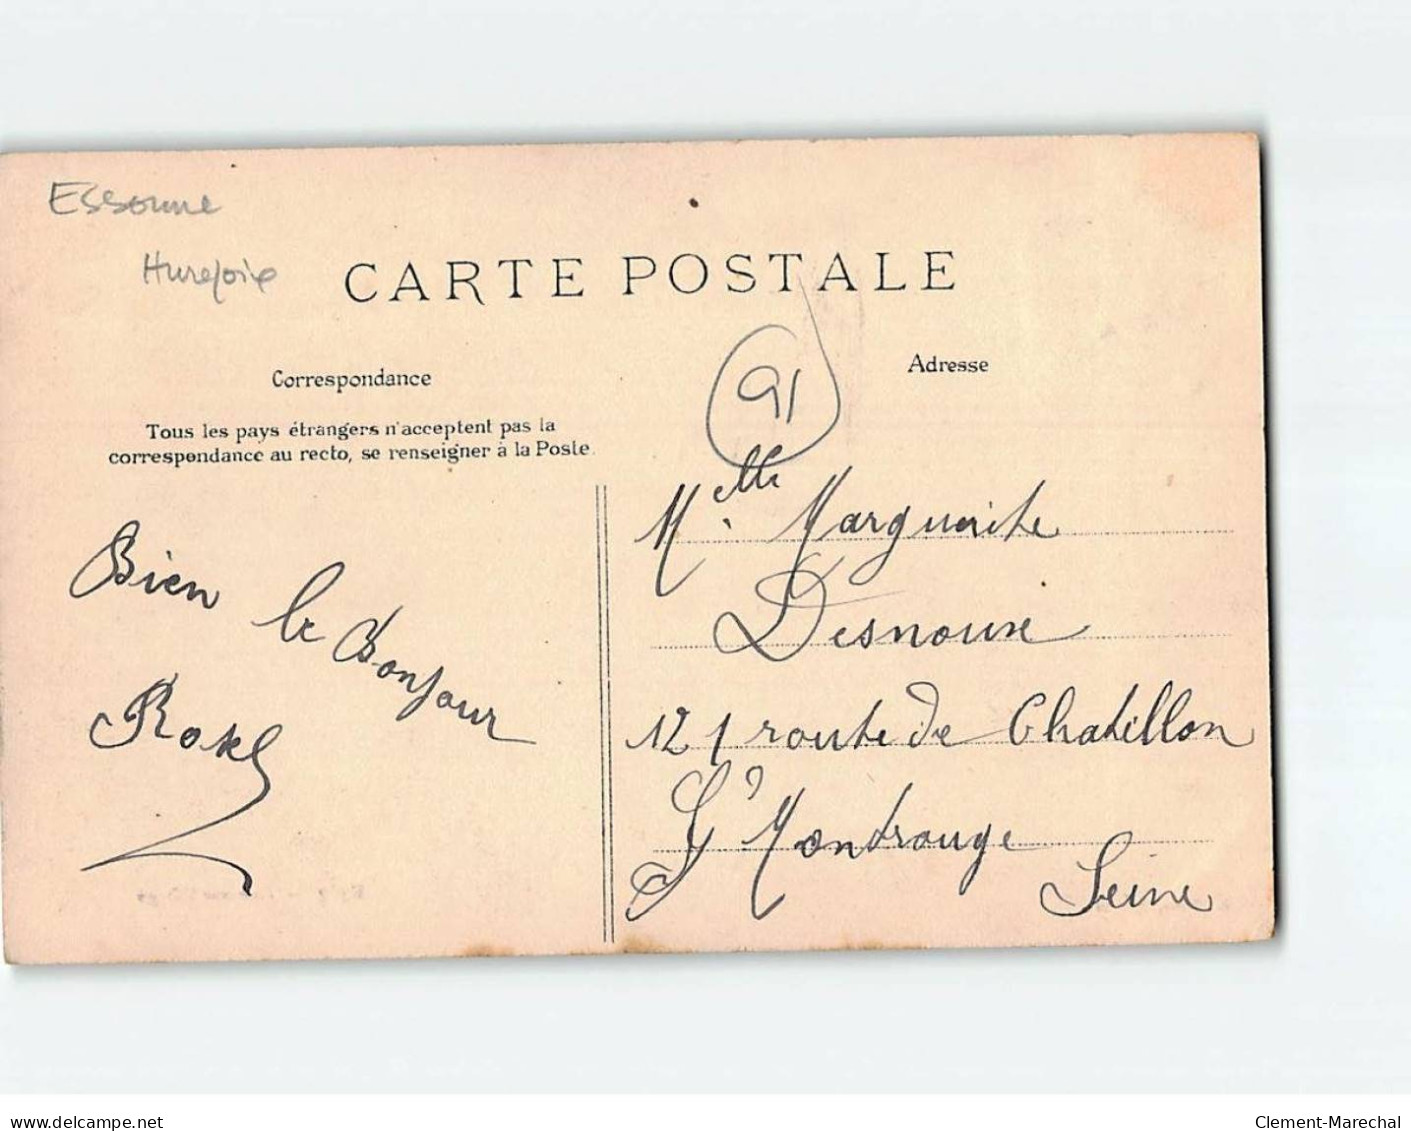 Essonne
Hurepoix
CARTE POSTALE
Correspondance
Adresse
91
Tous les pays étrangers n'acceptent pas la
correspondance au recto, se renseigner à la Poste.
Bien le Bonjour
Melle Marguerite
121 route de Chatillon
Gd Montrouge
Seine
delcampe.net
Clement-Marechal